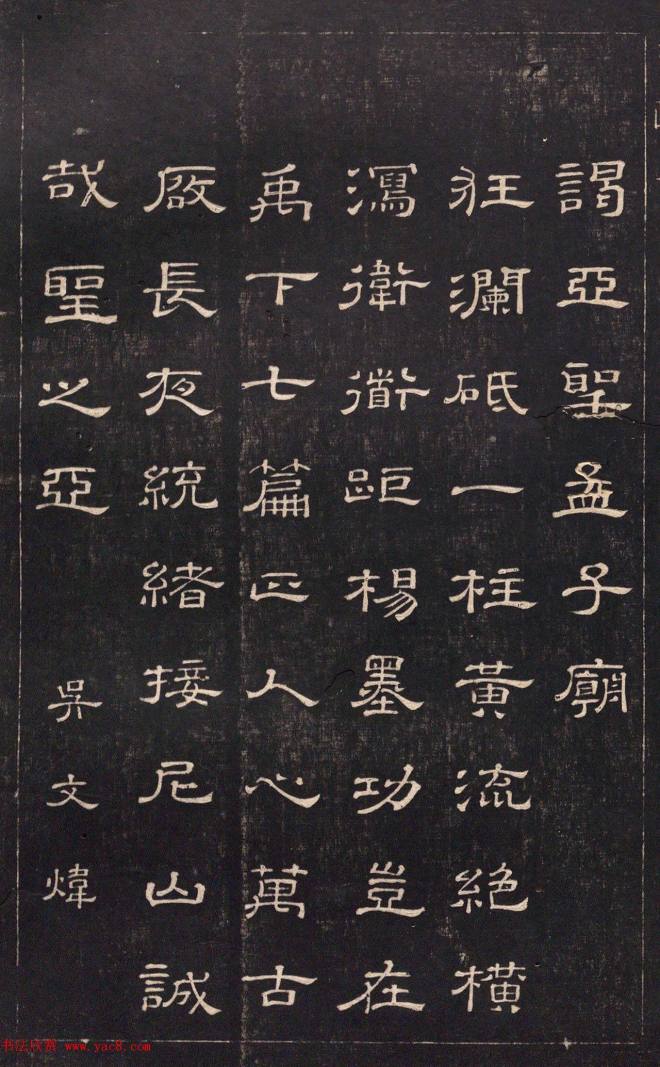 謁亞聖孟子廟
狂瀾砥一柱黃流絕橫
瀉衛衜距楊墨功豈在
禹下七篇正人心萬古
啟長夜統緒接尼山誠
哉聖之亞
吳文煒
书法欣赏 www.yac8.com